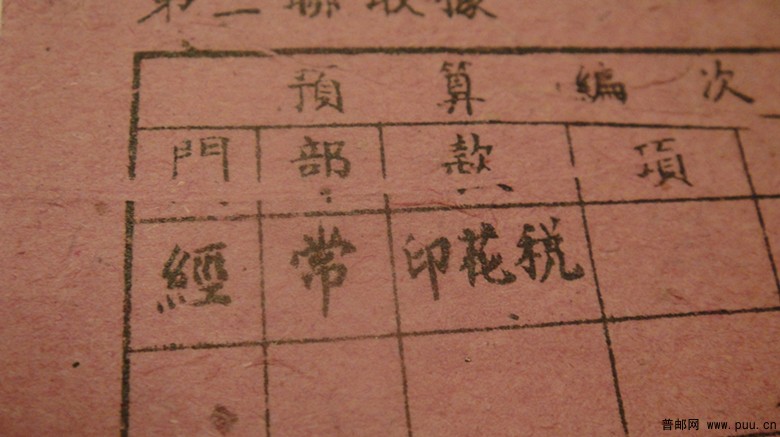 第二聯收據
預算編次
門 部 款 項
經 常 印花税
普邮网 www.puu.cn